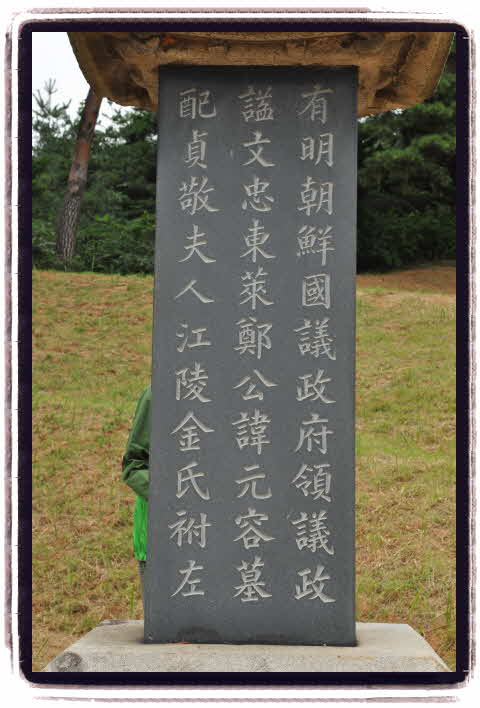 有明朝鮮國議政府領議政
諡文忠東萊鄭公諱元容墓
配貞敬夫人江陵金氏祔左